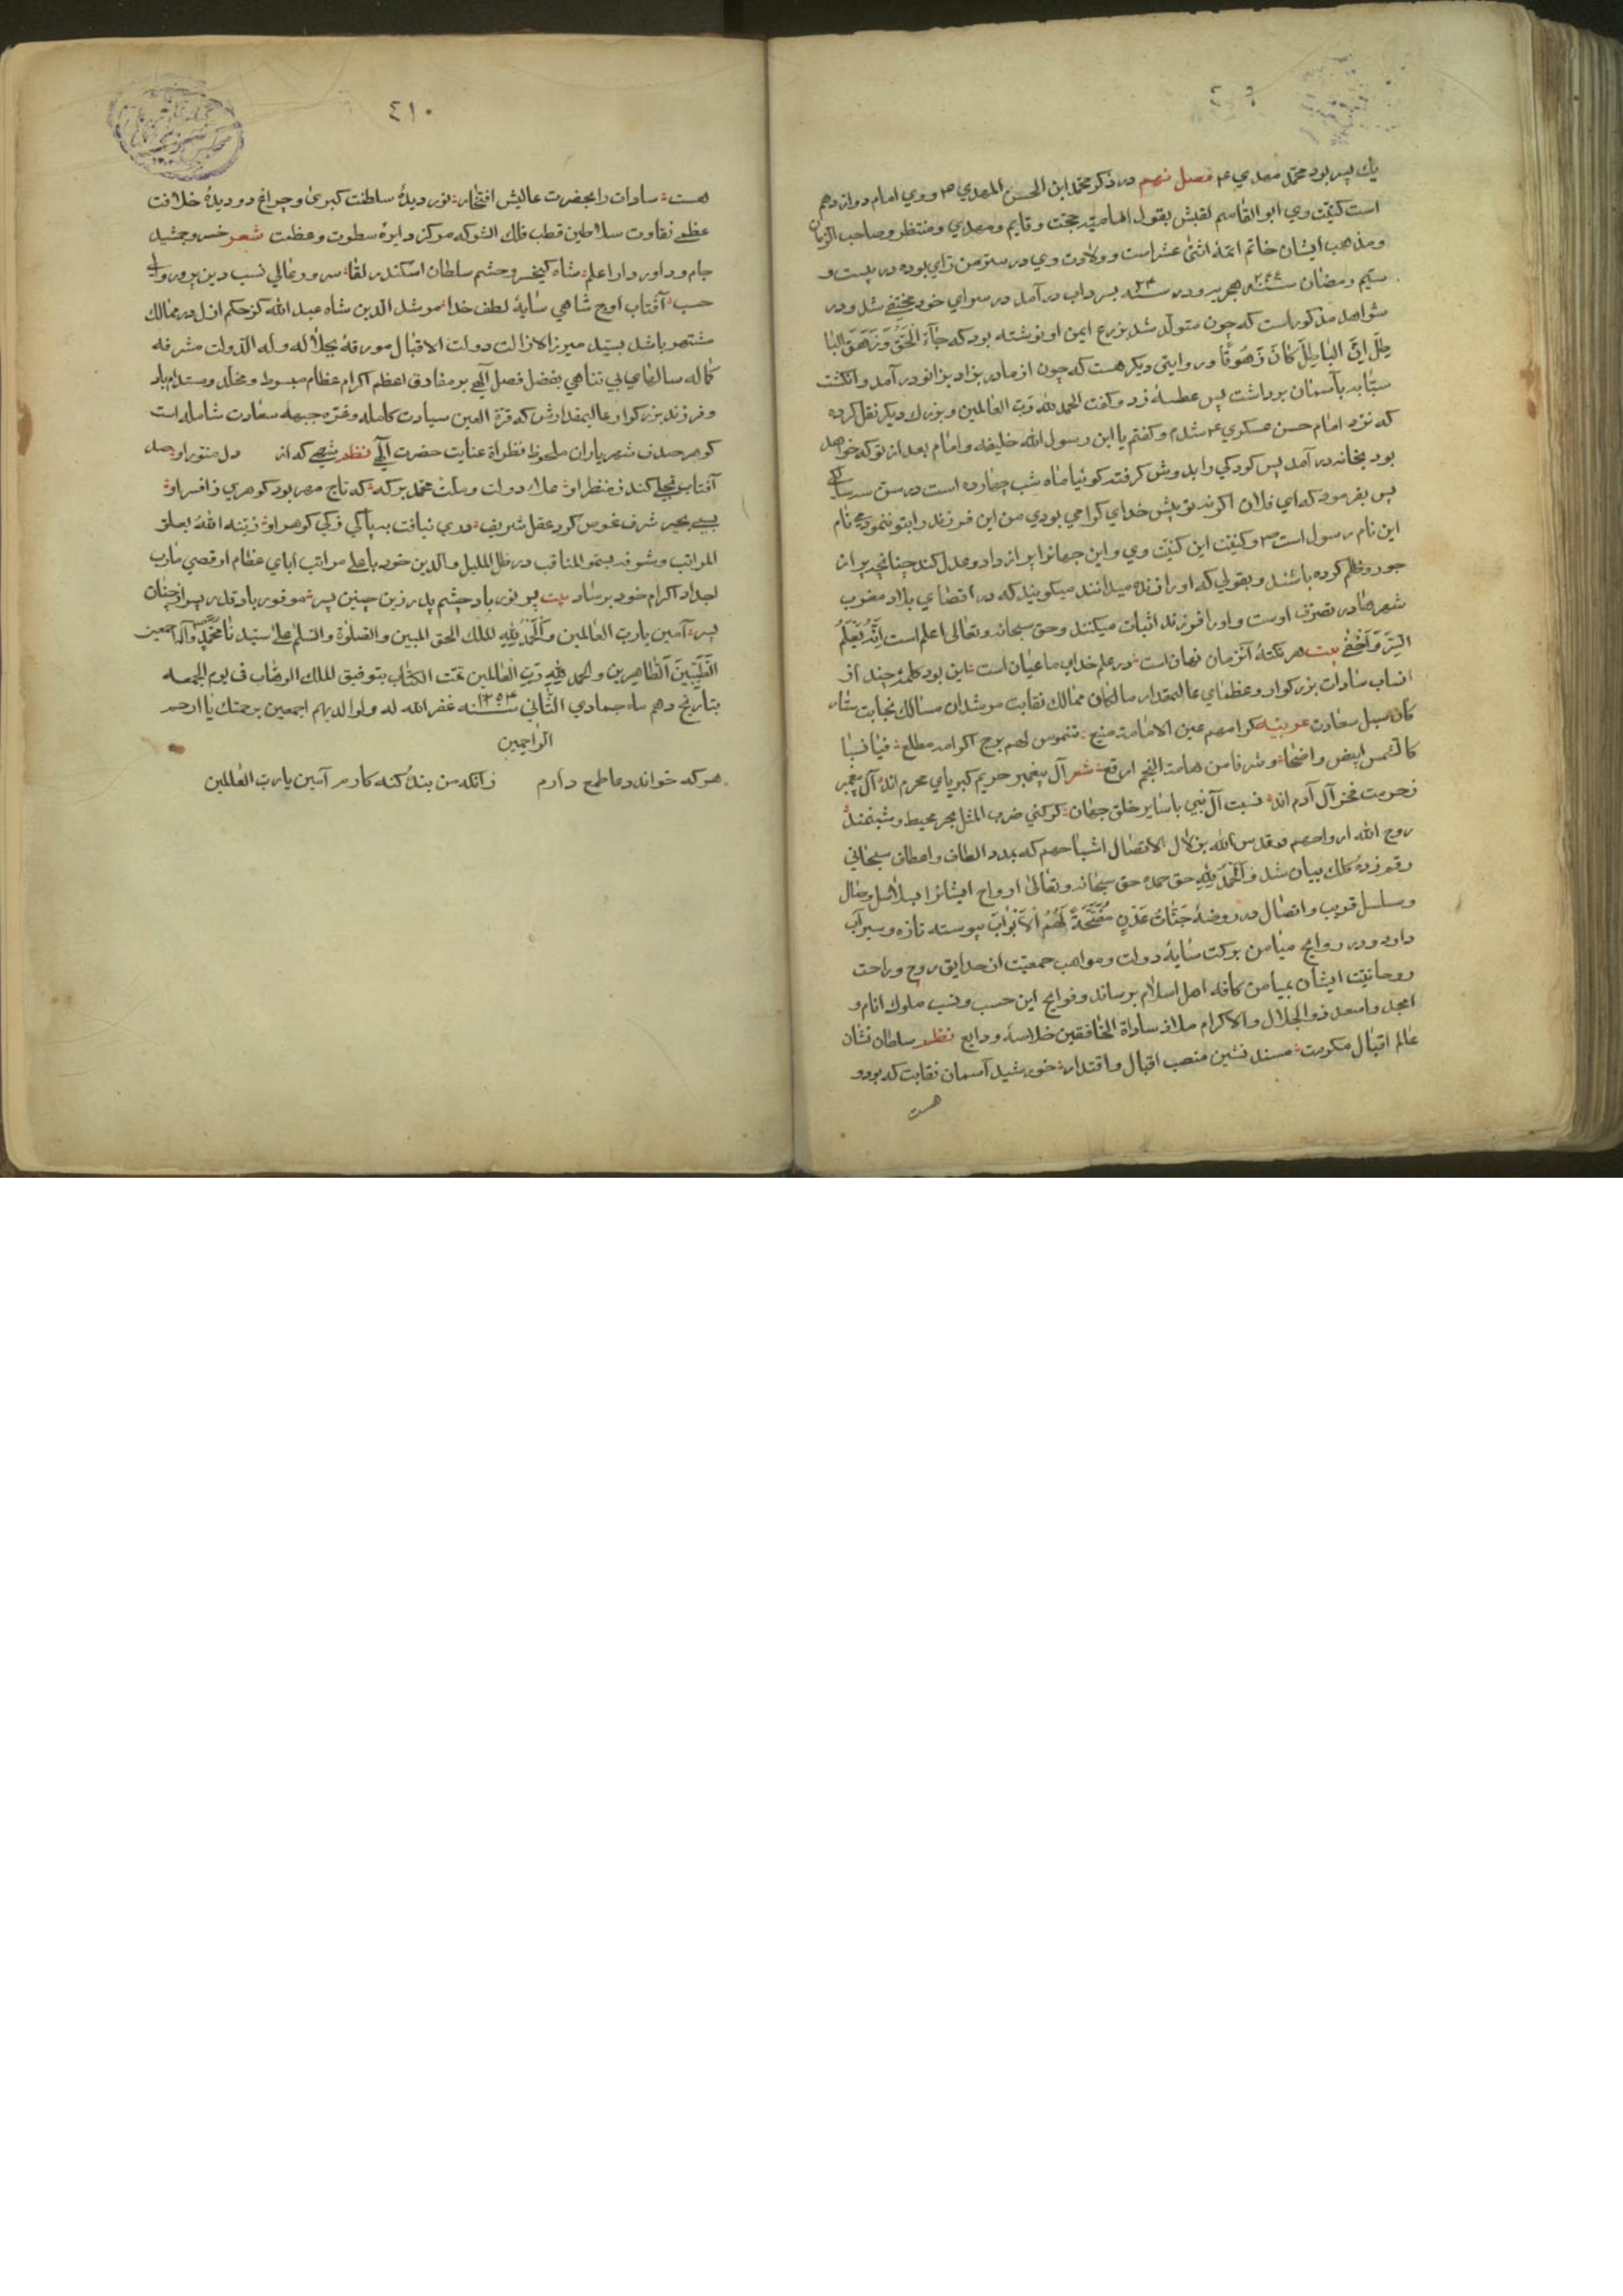 یك پسر بود محمّد مهدي ع فصل نهم در ذكر محمّد ابن الحسن المهدي ع و وي امام دوازدهم
است كنیّت وي ابو القاسم لقبش بقول امامیّه حجّت و قایم و مهدي و منتظر و صاحب الزمان
و مذهب ایشان خاتم ائمّهٔ اثنی عشر است و ولادت وي در سرّ من راي بوده در بیست و
سیّم رمضان سنه هجریه و در سنه بسرداب در آمد در سراي خود مختفي شد و در
شواهد مذكور است كه چون متولّد شد بر ذرع ایمن او نوشته بود كه جَآءَ الْحَقُّ وَ زَهَقَ البَا
طِلُ اِنَّ البَاطِلَ كَانَ زَهُوقًا و روایتی دیكر هست كه چون از مادر بزاد بزانو در آمد و انكشت
سبّابه بآسمان برداشت پس عطسهٔ زد و كفت الحمد لله رَبّ العالمین و بزرك دیكر نقل كرده
كه نزد امام حسن عسكري ع شدم و كفتم یا ابن رسول الله خلیفه و امام بعد از تو كه خواهد
بود بخانه در آمد پس كودكي را بدوش كرفته كوئیا ماه شب چهارده است در سن سه سالكي
پس بفرمود كه اي فلان اكر نه تو پیش خداي كرامي بودي من این فرزند را بتو ننمودمي نام
این نام رسول است ص و كنیّت این كنیّت وي و این جهانرا پر از داد و عدل كند چنانچه پر از
جور و ظلم كرده باشند و بقولي كه او را زنده میدانند میكویند كه در اقصاي بلاد مغرب
شهرها در تصرّف اوست و او را فرزند اثبات میكنند و حق سبحانه و تعالی اعلم است اِنَّهُ یَعْلَمُ
السِّرَّ وَ اَخْفَی بیت هر نكتهٔ كزمان نهان است در علم خداي ما عیان است این بود كلمهٔ چند از
انساب سادات بزركوار و عظماي عالیمقدار سالكان ممالك نقابت مرشدان مسالك نجابت
سبل سعادت عربیّه كرامهم عین الامامة منبع شموس لهم برج اكرامه مطلع فیا نسبا
كالشمس ابیض واضحا و شرفا من هامة النجم ارفع شعر آل پیغمبر حریم كبریاي محرم اند آل پیغمبر
ز حرمت فخر آل آدم اند نسبت آل نبي با سایر خلق جهان كر كني ضرب المثل بحر محیط و شبنمند
روح الله ارواحهم و قدس الله بزلال الاتصال اشباحهم كه بمدد الطاف و اعطاف سبحاني
رقم زدهٔ كلك بیان شد وَ الْحَمْدُ لِلّٰهِ حق حمده حق سبحانه و تعالی ارواح ایشانرا بسلاسل وصال
و سلسل قریب و اتصال در روضهٔ جَنّٰاتِ عَدْنٍ مُفَتَّحَةً لَهُمُ الْاَبْوَابُ پیوسته تازه و سیراب
دارد و در روایح میامن بركت سایهٔ دولت و مواهب جمعیّت از حدایق روح و راحت
روحانیّت ایشان بمیامن كافه اهل اسلام برساند و فوایح این حسب و نسب ملوك انام و
امجد و اسعد ذو الجلال و الاكرام ملاذ سادات الخافقین خلاصهٔ ودایع نظم سلطان نشان
عالم اقبال مكرمت مسند نشین منصب اقبال و اقتدار خورشید آسمان نقابت كه بود و
هست
٤١٠
هست سادات را بحضرت عالیش افتخار نور دیدهٔ سلطنت كبری و چراغ دودیدهٔ خلافت
عظمی نقاوت سلاطین قطب فلك الشوكه مركز دایرهٔ سطوت و عظمت شعر خسرو جمشید
جام و داور دارا علم شاه كیخسرو حشم سلطان اسكندر لقا سرور عالي نسب دین پرور والا
حسب آفتاب اوج شاهي سایهٔ لطف خدا مرشد الدین شاه عبد الله كز حكم ازل در ممالك
مشتهر باشد بسیّد میرزا لا زالت دولت الاقبال مورقة بجلاله و له الدّولت مشرفه
كماله سالهاي بي تناهي بفضل فصل آلهي بر مفارق اعظم اكرام عظام مبسوط و مخلّد و مستدام باد
و فرزند بزركوار عالیمقدارش كه قرّة العین سیادت كامله و غرّه جبهه سعادت شامله است
كوهر صدف شهریاران ملحوظ نظر اة عنایت حضرت آلهي نظم شهي كه از دل منوّر او صد
آفتاب تجلي كند ز منظر او ملاذ دولت و ملّت محمد بركه كه تاج مهر بود كوهري ز افسر او
بسي ببحر شرف غوص كرد عقل شریف دري نیافت بپاكي زكي كوهر او زیّنه الله بعلو
المراتب و شرفه بسمو المناقب در ظل الظلیل والدین خود باعلي مراتب اباي عظام و اقصي مارب
اجداد اكرام خود برساد بیت پر نور باد چشم پدر زین چنین پسر موفور باد قدر پسر از چنان
پدر آمین یا رب العالمین و الْحَمْدُ لِلّٰهِ الملك الحق المبین و الصلوة و السّلم علی سیّدنا محمّدٍ و آله اجمعین
الطَّیِّبِینَ الطّاهِرِین و الحمد لله رَبّ العالمین تمّت الكتاب بتوفیق الملك الوهّاب في یوم الجمعه
بتاریخ دهم ماه جمادي الثاني سنه ۱۲۵۴ غفر الله له و لوالدیهم اجمعین برحمتك یا ارحم
الراحمین
هر كه خواند دعا طمع دارم زانكه من بندهٔ كنه كارم آمین یا رب العالمین